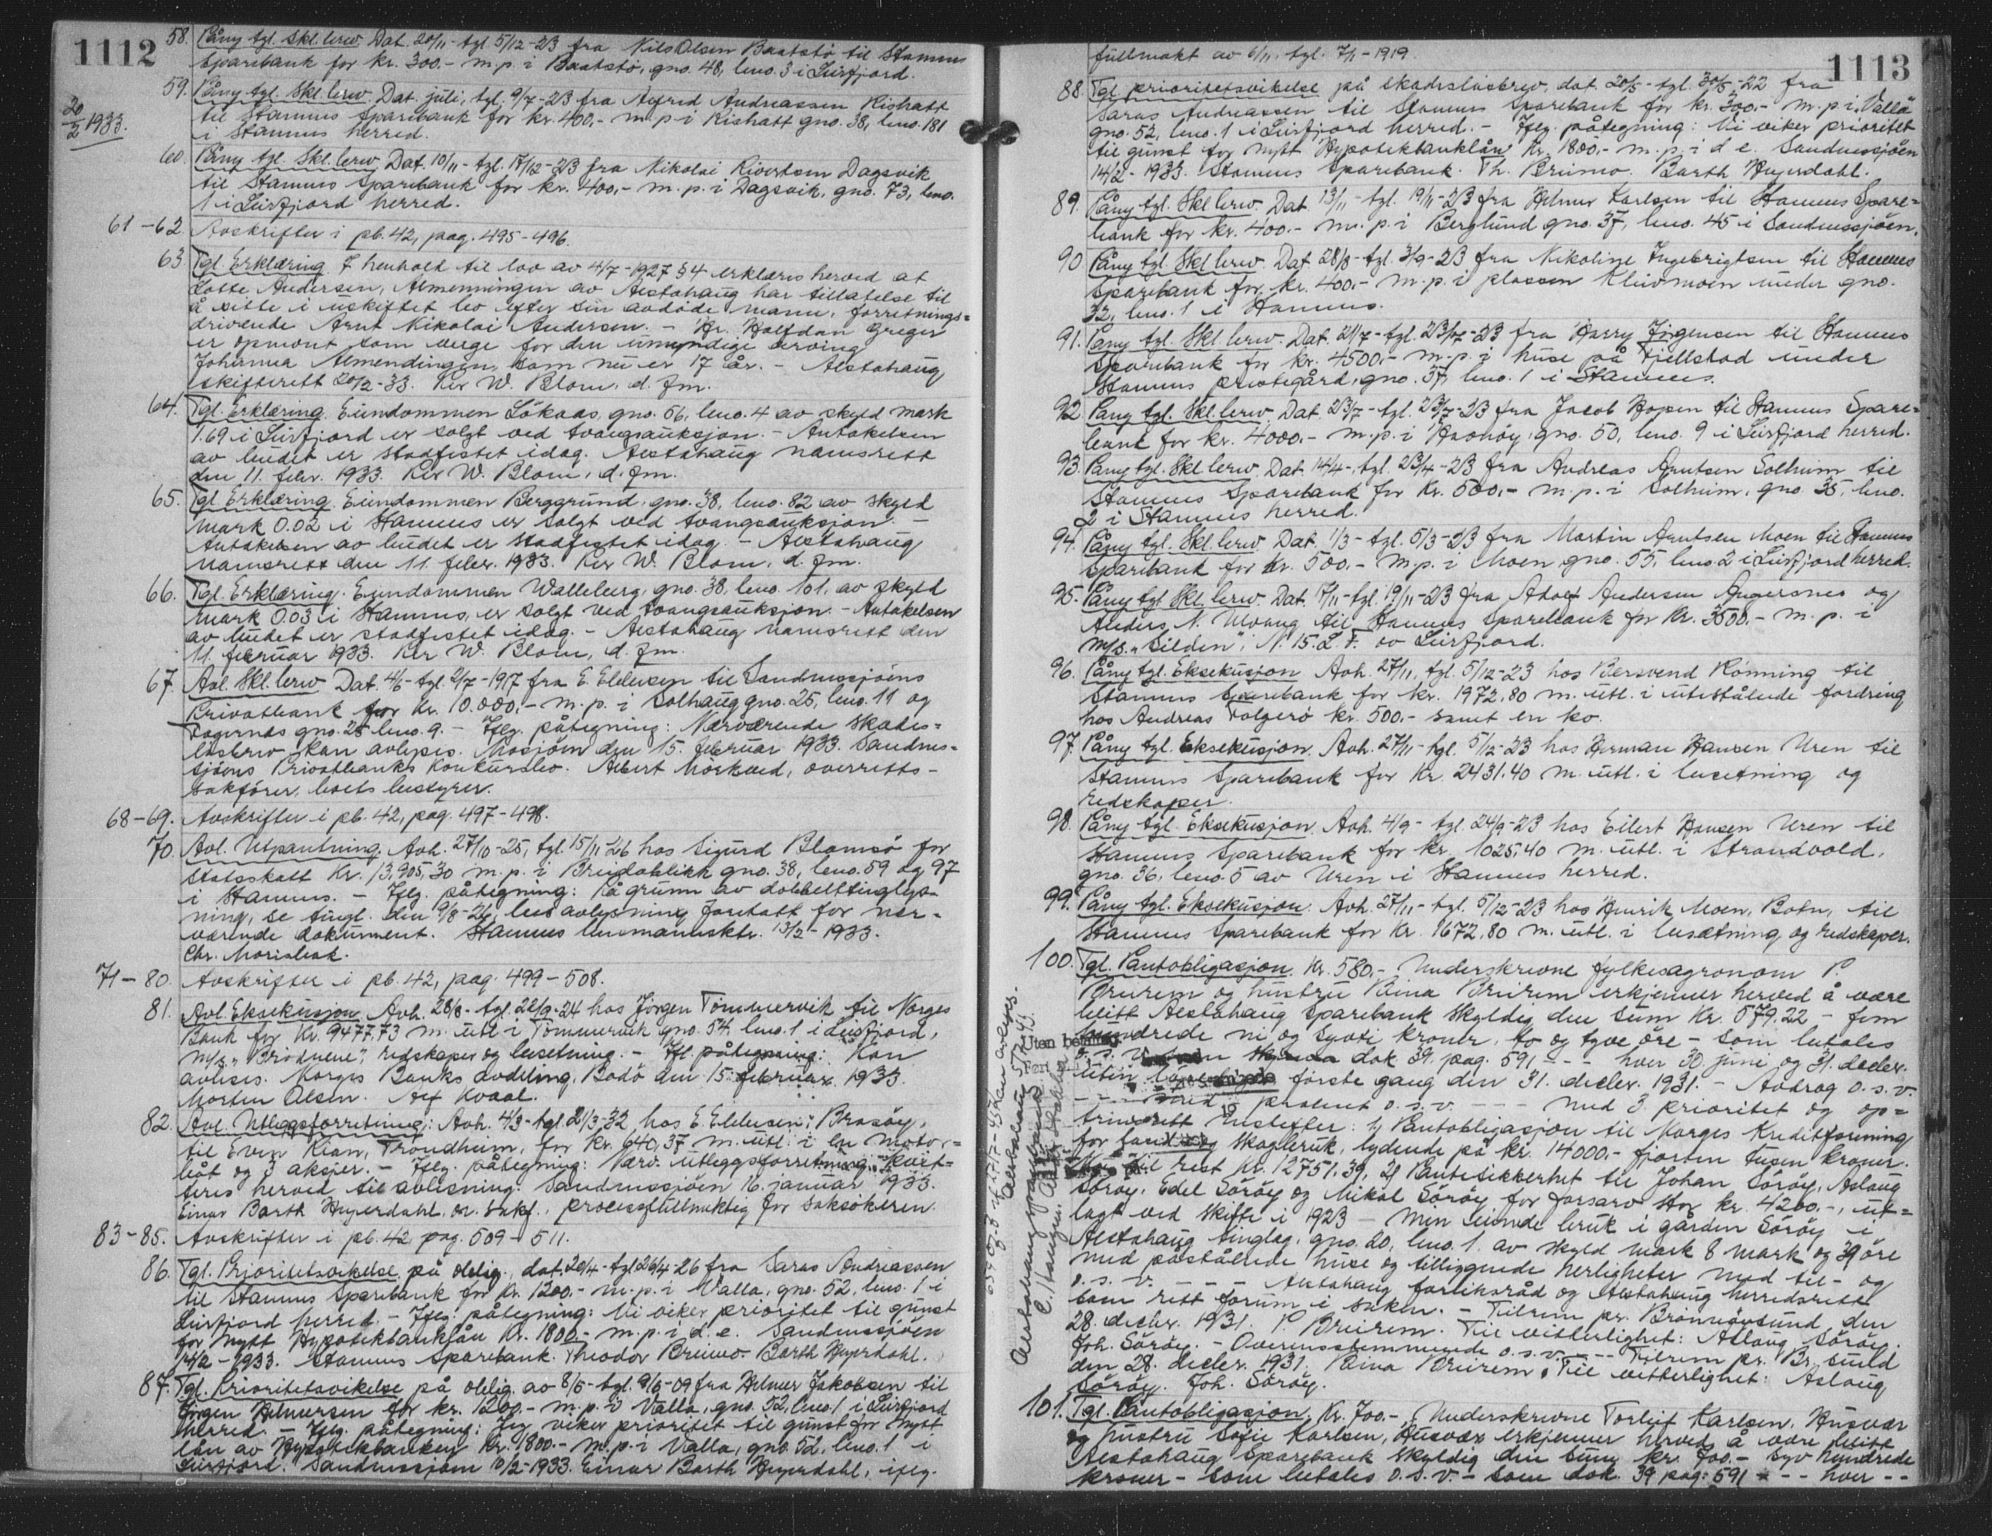 1112
58. Påny tgl. Skl. brev Dat. 20/11 - tgl 5/12-23 fra Nils Olsen Baatstø til Stamnes
Sparebank for kr. 300.- m.p. i Baatstø, gno. 48, bno. 3 i Leirfjord.
20/2 1933.
59. Påny tgl. Skl. brev Dat. juli, tgl. 9/7-23 fra Alfred Andreassen Kishatt
til Stamnes Sparebank for kr. 400,- m.p. i Kishatt gno. 38, bno. 181
i Stamnes herred.
60. Påny tgl. Skl. brev Dat. 10/11 - tgl. 17/12-23 fra Nikolai Sivertsen Dagsvik
til Stamnes Sparebank for kr. 400,- m.p. i Dagsvik, gno. 73, bno.
1 i Leirfjord herred.
61-62 Avskrifter i pb. 42, pag. 495-496.
63 Tgl. Erklæring I henhold til lov av 4/7-1927 § 4 erklæres herved at
Lotte Andersen, Almenningen av Alstahaug har tillatelse til
å sitte i uskiftet bo efter sin avdøde mann, forretnings=
drivende Arnt Nikolai Andersen. - Hr. Halfdan Greger
er opnevnt som verge for den umyndige arving
Johanna Almendingen, som nu er 17 år. - Alstahaug
skifterett 20/2-33. Per W. Blom, d. fm.
64. Tgl. Erklæring. Eiendommen Løkaas, gno. 56, bno. 4 av skyld mark
1.69 i Leirfjord er solgt ved tvangsauksjon. - Antakelsen
av budet er stadfestet idag. Alstahaug namsrett
den 11. febr. 1933. Per W. Blom, d. fm.
65. Tgl. Erklæring. Eiendommen Berggrund, gno. 38, bno. 82 av skyld
mark 0.02 i Stamnes er solgt ved tvangsauksjon. -
Antakelsen av budet er stadfestet idag. - Alstahaug
namsrett den 11. febr. 1933. Per W. Blom, d. fm.
66. Tgl. Erklæring. Eiendommen Walleberg, gno. 38, bno. 101, av skyld
mark 0.03 i Stamnes, er solgt ved tvangsauksjon. - Antakelsen
av budet er stadfestet idag. - Alstahaug namsrett den
11. februar 1933. Per W. Blom, d. fm.
67 Avl. Skl. brev Dat. 4/6 - tgl. 9/7-1917 fra E. Eldersen til Sandnessjøens
Privatbank for kr. 10.000.- m.p. i Solhaug gno. 25, bno. 11 og
Fagernes gno. 25 bno. 9. - Iflg. påtegning: Nærværende skades=
løsbrev kan avlyses. Mosjøen den 15. februar 1933. Sandnes=
sjøens Privatbanks konkursbo. Albert Mørkved, overretts-
sakfører, boets bestyrer.
68-69. Avskrifter i pb. 42, pag. 497-498.
70. Avl. Utpantning. Avh. 27/10-25, tgl. 15/11 26 hos Sigurd Blomsø for
Statsskatt kr. 13,905,30 m.p. i Breidablikk gno. 38, bno. 59 og 97
i Stamnes. - Iflg. påtegning: På grunn av dobbelttinglys-
ning, se tingl. den 9/8-26, bes avlysning foretatt for nær-
værende dokument. Stamnes lensmannsktr. 13/2-1933.
Chr. Morisbak.
71-80. Avskrifter i pb. 42, pag. 499-508.
81. Avl. Eksekusjon Avh. 28/8 - tgl. 22/9-24 hos Jørgen Tømmervik til Norges
Bank for kr. 9477.73 m. utl. i Tømmervik gno. 54, bno. 1 i Leirfjord,
m/s. "Brødrene", redskaper og besetning. - Ifl. påtegning: Kan
avlyses. Norges Banks avdeling, Bodø den 15. februar 1933.
Morten Olsen. Alf Kvaal.
82. Avl. Utleggsforretning: Avh. 4/3 - tgl. 21/3-32, hos E. Eldersen, Brasøy,
til Even Kian, Trondheim, for kr. 640,37 m. utl. i en motor-
båt og 3 aksjer. - Iflg. påtegning: Nærv. utleggsforretning kvit-
teres herved til avlesning. Sandnessjøen 16. januar 1933.
Einar Barth Heyerdahl, or. sakf., prosessfullmektig for saksøkeren.
83-85. Avskrifter i pb. 42 pag. 509-511.
86. Tgl. Prioritetsvikelse på oblig., dat. 20/4 - tgl. 26/4 26 fra Saras Andreassen
til Stamnes Sparebank for kr. 1200.- m.p. i Valla, gno. 52, bno. 1 i
Leirfjord herred. - Iflg. påtegning: Vi viker prioritet til gunst
for nytt Hypotekbanklån kr. 1800.- m.p. i d.e. Sandnessjøen
14/2-1933. Stamnes Sparebank. Theodor Bruvo. Barth Heyerdahl.
87. Tgl. Prioritetsvikelse på oblig. av 8/5 - tgl. 9/6-09 fra Helmer Jakobsen til
Jørgen Helmersen for kr. 1200.- m.p. i Valla, gno. 52, bno. 1 i Leirfjord
herred. - Iflg. påtegning: Jeg viker prioritet til gunst for nytt
lån av Hypotekbanken kr. 1800.- m.p. i Valla, gno. 52, bno. 1 i
Leirfjord. Sandnessjøen 10/2-1933. Einar Barth Heyerdahl, iflg.
1113
fullmakt av 6/11, tgl. 7/1-1919.
88. Tgl. prioritetsvikelse på skadesløsbrev, dat. 20/5 - tgl. 30/5-22 fra
Saras Andreassen til Stamnes Sparebank for kr. 300.- m.p. i Valla
gno. 52, bno. 1 i Leirfjord herred. - Iflg. påtegning: Vi viker prioritet
til gunst for nytt Hypotekbanklån kr. 1800.- m.p. i d.e. Sandnessjøen
14/2-1933. Stamnes Sparebank. Th. Bruvo. Barth Heyerdahl.
89. Påny tgl. Skl. brev Dat. 13/11 - tgl. 19/11-23 fra Helmer Karlsen til Stamnes Spare=
bank for kr. 400.- m.p. i Berglund gno. 37, bno. 45 i Sandnessjøen.
90 Påny tgl. Skl. brev. Dat. 28/8 - tgl. 3/9-23 fra Nikoline Ingebrigtsen til Stamnes
Sparebank for kr. 400.- m.p. i plassen Kleivmoen under gno.
32, bno. 1 i Stamnes.
91. Påny tgl. Skl. brev. Dat. 21/7 - tgl. 23/7-23 fra Harry Jørgensen til Stamnes
Sparebank for kr. 4500.- m.p. i huse på Fjellstad under
Stamnes prestegård, gno. 37, bno. 1 i Stamnes.
92. Påny tgl. Skl. brev Dat. 23/7 - tgl. 23/7-23 fra Jacob Hopen til Stamnes Spare=
bank for kr. 4000.- m.p. i Haonøy, gno. 50, bno. 9 i Leirfjord herred.
93. Påny tgl. Skl. brev Dat. 14/4 - tgl. 23/4-23 fra Andreas Arntsen Solheim til
Stamnes Sparebank for kr. 500,- m.p. i Solheim, gno. 35, bno.
2 i Stamnes herred.
94. Påny tgl. Skl. brev. Dat. 1/3 - tgl. 5/3-23 fra Martin Arntsen Moen til Stamnes
Sparebank for kr. 500.- m.p. i Moen, gno. 55, bno. 2 i Leirfjord herred.
95. Påny tgl. Skl. brev. Dat. 17/11 - tgl. 19/11-23 fra Adolf Andersen Angersnes og
Anders N. Ulvang til Stamnes Sparebank for kr. 3500.- m.p. i
m/s. "Silden", N. 15. L. F. av Leirfjord.
96. Påny tgl. Eksekusjon Avh. 27/11, tgl. 5/12-23 hos Bersvend Rønning til
Stamnes Sparebank for kr. 1972,80 m. utl. i utestående fordring
hos Andreas Valgerø kr. 500,- samt en ko.
97. Påny tgl. Eksekusjon. Avh. 27/11 - tgl. 5/12-23 hos Herman Hansen Uren til
Stamnes Sparebank for kr. 2431.40 m. utl. i besetning og
redskaper.
98. Påny tgl. Eksekusjon. Avh. 4/9 - tgl. 24/9-23 hos Eilert Hansen Uren til
Stamnes Sparebank for kr. 1025,40 m. utl. i Strandvold,
gno. 36, bno. 5 av Uren i Stamnes herred.
99. Påny tgl. Eksekusjon. Avh. 27/11 - tgl. 5/12-23 hos Henrik Moen, Botn, til
Stamnes Sparebank for kr. 1672.80 m. utl. i besetning og redskaper.
100. Tgl. Pantobligasjon. Kr. 580.- Underskrevne fylkesagronom P.
Breirem og hustru Bina Breirem erkjenner herved å være
blitt Alstahaug Sparebank skyldig den sum kr. 579.22 - fem
hundrede ni og sytti kroner, to og tyve øre - som betales
dok 39. pag. 591 - - - hver 30. juni og 31. decbr.
første gang den 31. decbr. 1931. - Avdrag o.s.v.
prosent o.s.v. - - - - med 3 prioritet og op=
trinsrett nestefter: 1) Pantobligasjon til Norges Kreditforening
for land og skogbruk, lydende på kr. 14000.- fjorten tusen kroner.
til rest kr. 12751.39, 2) Pantesikkerhet til Johan Sørøy, Aslaug
Sørøy, Edel Sørøy og Mikal Sørøy for farsarv stor kr. 4200.-, ut=
lagt ved skifte i 1923 - Min eiende bruk i gården Sørøy i
Alstahaug tinglag, gno. 20, bno. 1. av skyld mark 8 mark og 39 øre
med påstående huse og tilliggende herligheter med til- og
o.s.v. - - - Alstahaug forliksråd og Alstahaug herredsrett
som rett forum i saken. - Tilrem pr. Brønnøysund, den
28. decbr. 1931. P. Breirem. Til vitterlighet: Aslaug Sørøy.
Joh. Sørøy. - Overensstemmende o.s.v. - - - Tilrem pr. Br.sund
den 28. decbr. 1931. Bina Breirem. Til vitterlighet: Aslaug
Sørøy. Joh. Sørøy.
Uten
101. Tgl. Pantobligasjon. Kr. 700.- Underskrevne Torleif Karlsen, Husvær
og hustru Sofie Karlsen, Husvær erkjenner herved å være blitt
Alstahaug Sparebank skyldig den sum kr. 700.- syv hundrede
kroner - som betales o.s.v. - som dok. 39 pag. 591 - - - hver - -